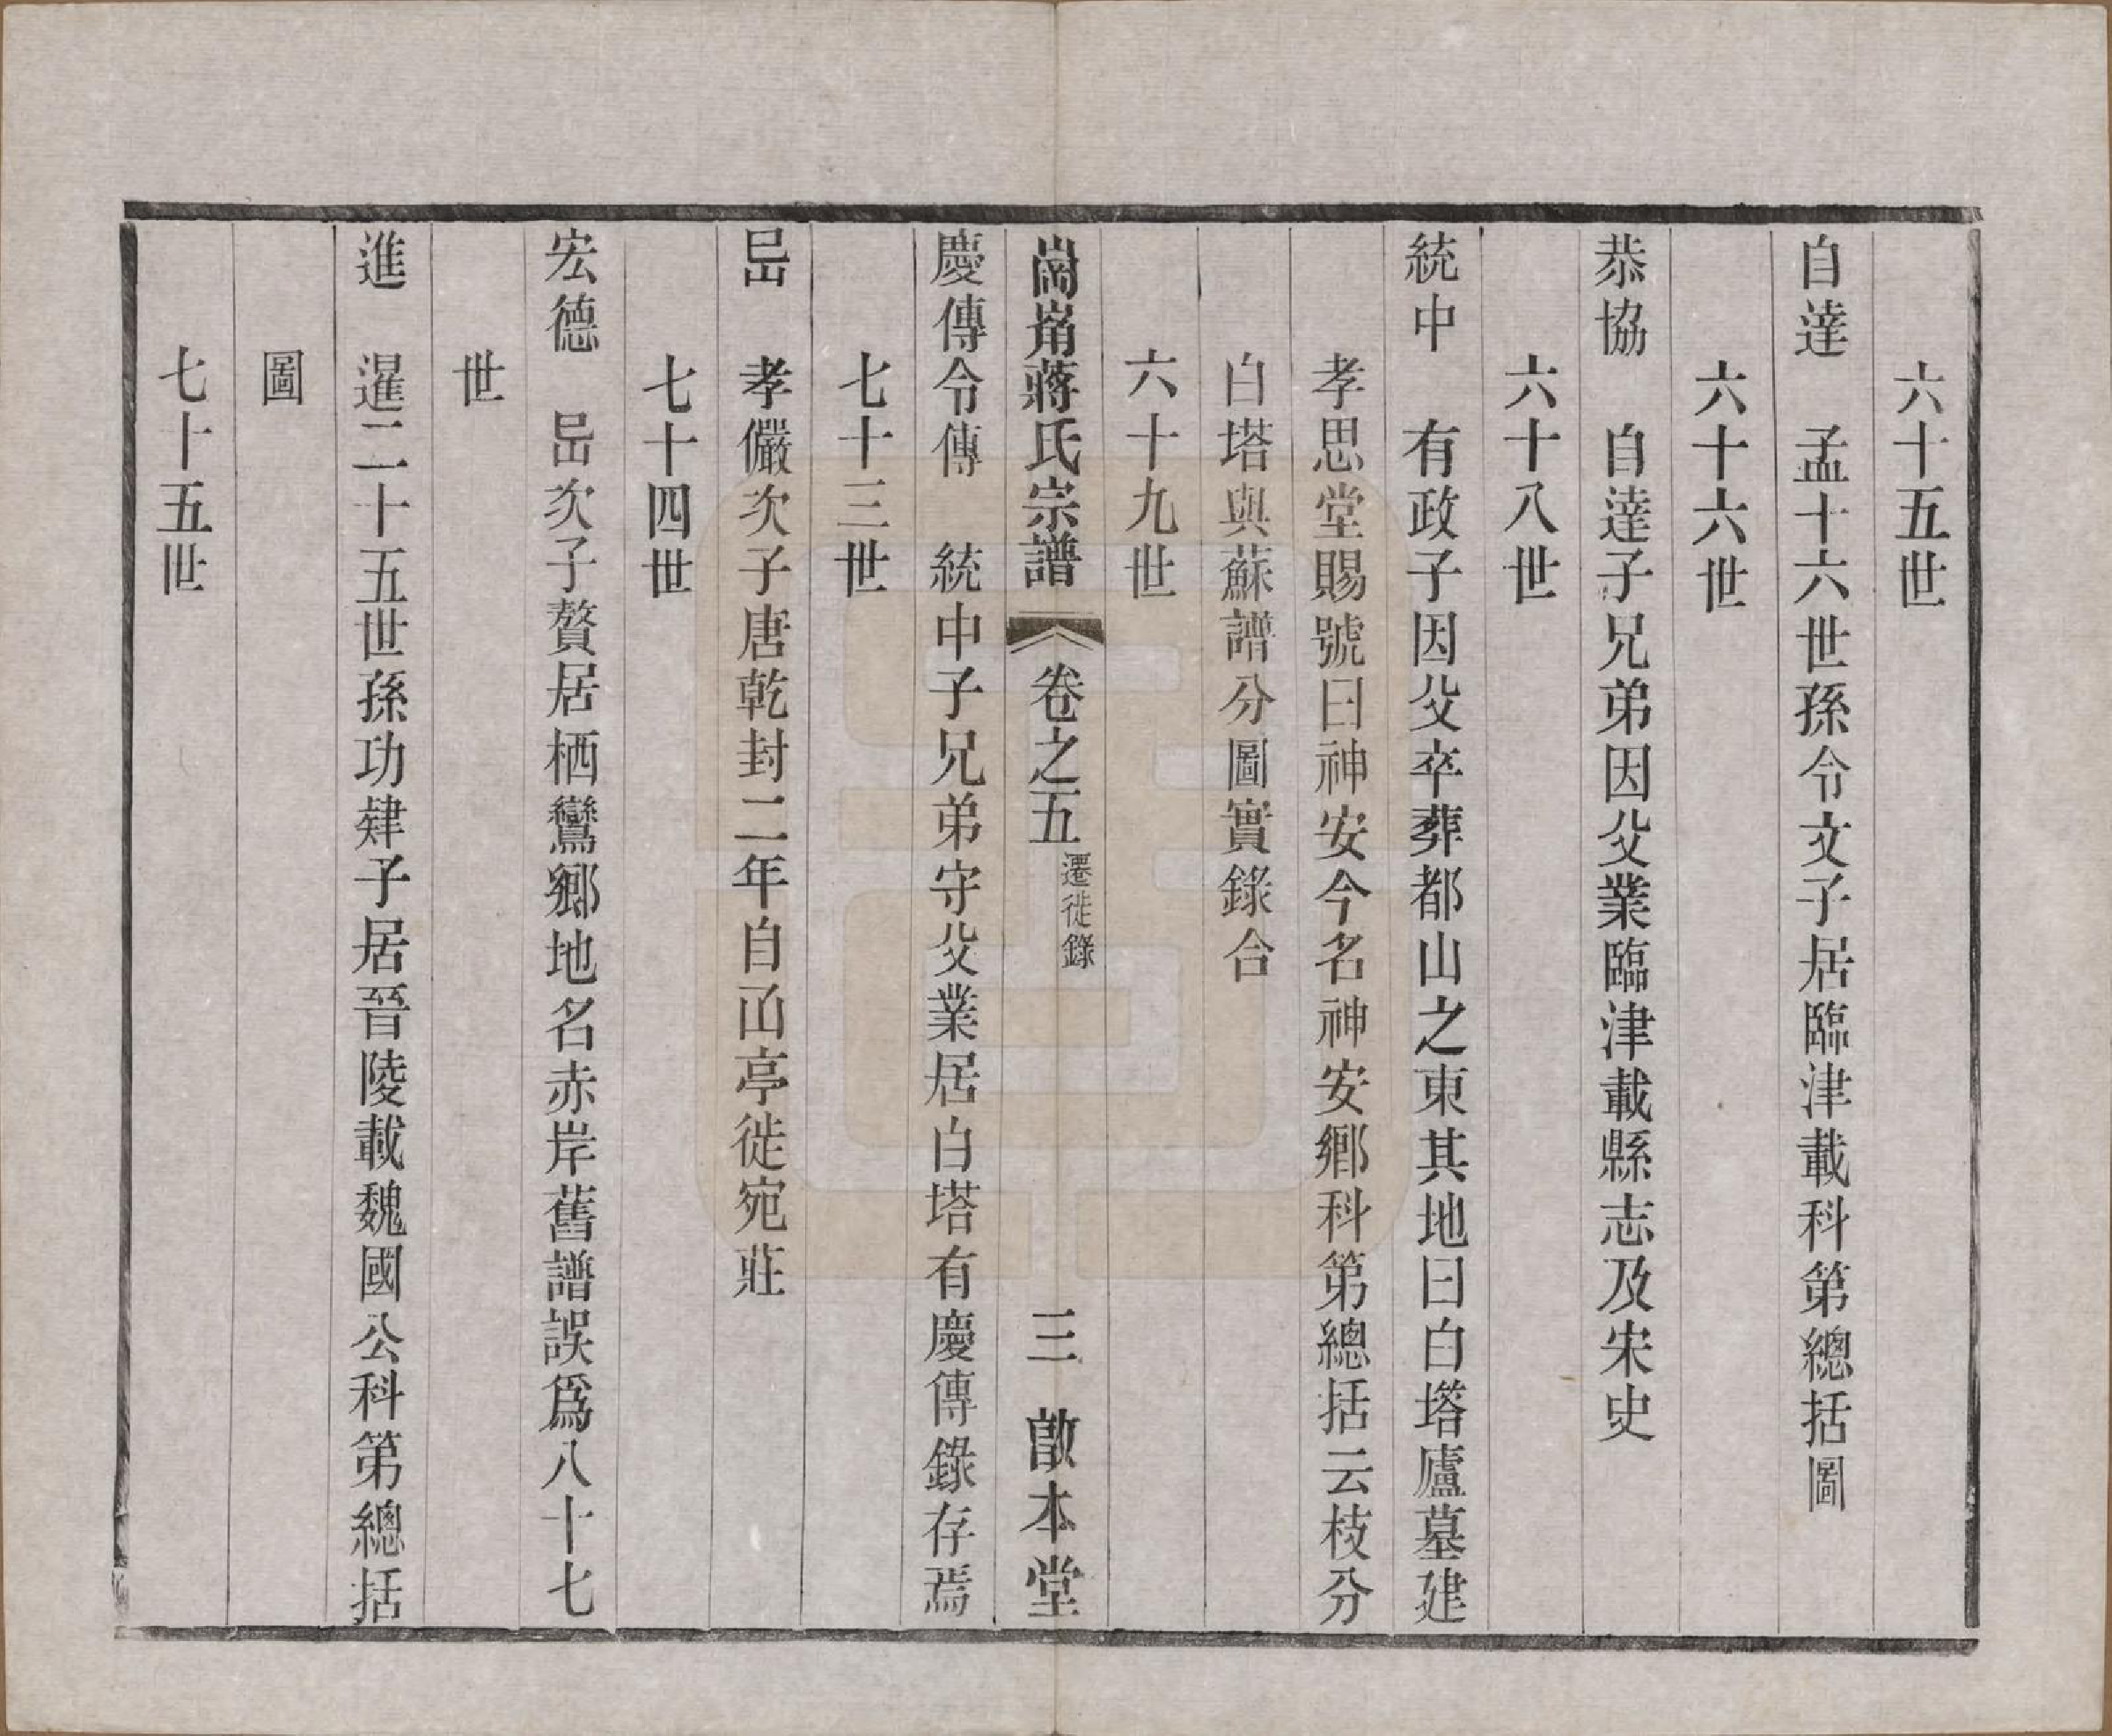 六十五世
自達　孟十六世孫令文子居臨津載科第總括圖
六十六世
恭協　自達子兄弟因父業臨津載縣志及宋史
六十八世
統中　有政子因父卒葬都山之東其地曰白塔廬墓建
孝思堂賜號曰神安今名神安鄉科第總括云枝分
白塔與蘇譜分圖實錄合
六十九世
蔣氏宗譜　卷之五　遷徙錄　三　啟本堂
慶傳令傳　統中子兄弟守父業居白塔有慶傳錄存焉
七十三世
孝儼次子唐乾封二年自函亭徙宛莊
七十四世
宏德　次子贅居栖鸞鄉地名赤岸舊譜誤爲八十七
世
進　暹二十五世孫功肄子居晉陵載魏國公科第總括
圖
七十五世